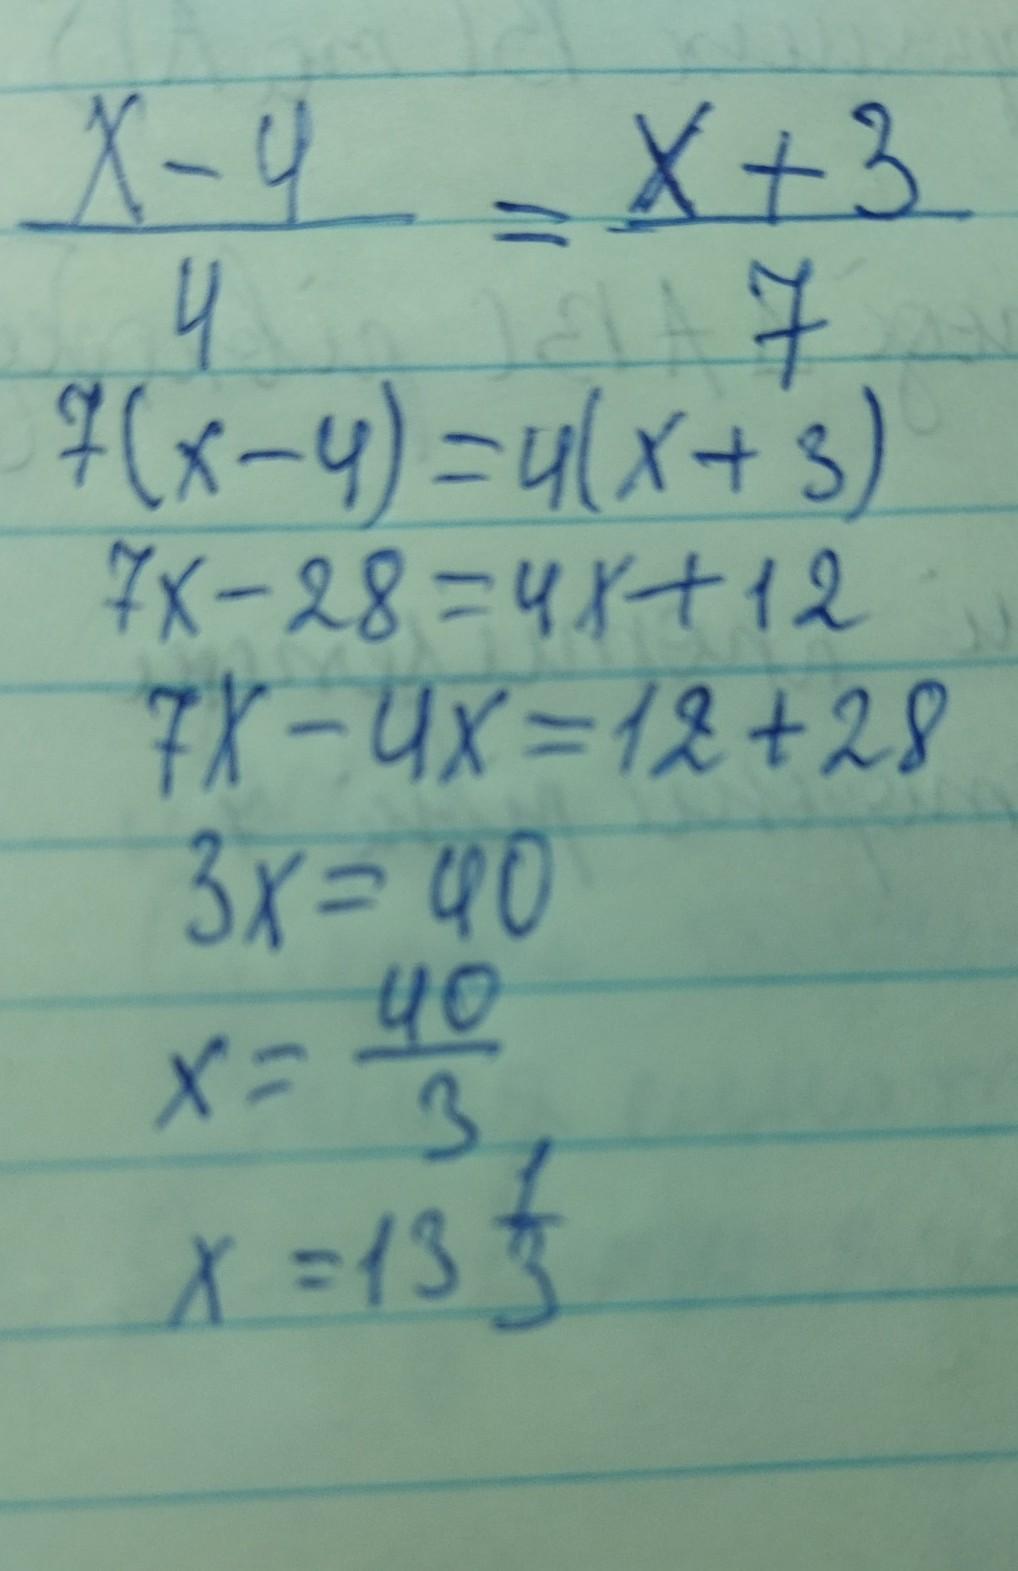 x-4/4 = x+3/7
7(x-4)=4(x+3)
7x-28=4x+12
7x-4x=12+28
3x=40
x=40/3
x=13 1/3